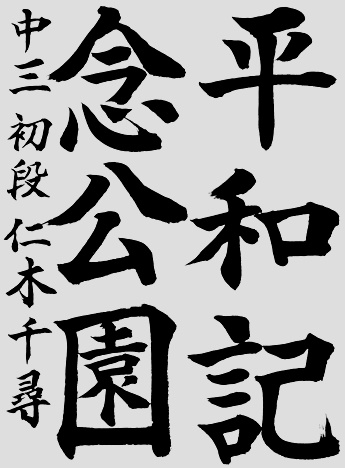 平和記
念公園
中三 初段 仁木千尋